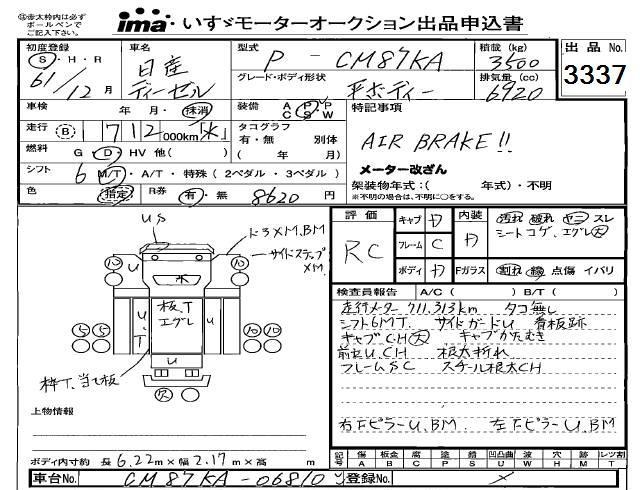 ①赤太枠内は必ず
ボールペンで
ご記入下さい。
ima いすゞモーターオークション出品申込書
初度登録 車名 型式 P - CM87KA 積載 (kg) 3500 出品 No.
S・H・R 日産 グレード・ボディ形状 排気量 (cc) 3337
61/12月 ディーゼル 平ボディー 6920
車検 年・月・抹消 装備 A P P C S W 特記事項
走行 B 1712,000km「水」 タコグラフ 有・無 別体 AIR BRAKE!!
燃料 G・D・HV 他( ) ( 年 月) メーター改ざん
シフト 6 M/T・A/T・特殊(2ペダル・3ペダル) 架装物年式:( 年式)・不明
色 指定 R券 有・無 8620 円 ※不明の場合は、不明に○をする。
US
ドラXM.BM
サイドステップXM.
10 U 10
水
板.T
エグレ
U.T
U
U
5 5 10 10
枠T.当て板
欠
評価 キャブ D 内装 汚れ 破れ ヤニ スレ
RC フレーム C D シートコゲ、エグレ大
ボディ D Fガラス 割れ 線 点傷 イバリ
検査員報告 A/C( ) B/T( )
走行メーター 711,313km タコ無し
シフト6MT. サイドガードU 看板跡
キャブC.H大 キャブかたむき
前セU.CH 根太折れ
フレームSC スチール根太CH
右下ピラーU.BM. 左下ピラーU.BM
上物情報
ボディ内寸約 長6.22m×幅2.17m×高 m
記号 傷 A 板金 B 腐 C 塗 P 錆 S 凹凸曲 U 波 W 穴 H 跡 M レンズ割 T
車台No. CM87KA-06810 登録No.